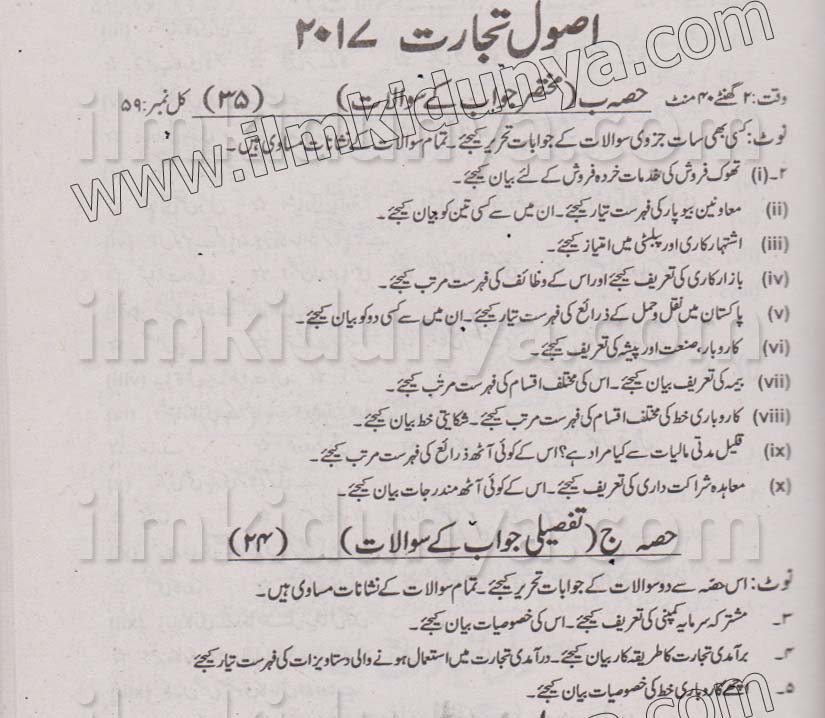 اصولِ تجارت ۲۰۱۷
وقت: ۲ گھنٹے ۴۰ منٹ حصہ ب (مختصر جواب کے سوالات) (۳۵) کل نمبر: ۵۹
نوٹ: کسی بھی سات جزوی سوالات کے جوابات تحریر کیجئے۔ تمام سوالات کے نشانات مساوی ہیں۔
www.ilmkidunya.com
۲۔ (i) تھوک فروش کی خدمات خردہ فروش کے لئے بیان کیجئے۔
(ii) معاونین بیوپار کی فہرست تیار کیجئے۔ ان میں سے کسی تین کو بیان کیجئے۔
(iii) اشتہار کاری اور پبلسٹی میں امتیاز کیجئے۔
(iv) بازار کاری کی تعریف کیجئے اور اس کے وظائف کی فہرست مرتب کیجئے۔
(v) پاکستان میں نقل و حمل کے ذرائع کی فہرست تیار کیجئے۔ ان میں سے کسی دو کو بیان کیجئے۔
(vi) کاروبار، صنعت اور پیشہ کی تعریف کیجئے۔
(vii) بیمہ کی تعریف بیان کیجئے۔ اس کی مختلف اقسام کی فہرست مرتب کیجئے۔
(viii) کاروباری خط کی مختلف اقسام کی فہرست مرتب کیجئے۔ شکایتی خط بیان کیجئے۔
(ix) قلیل مدتی مالیات سے کیا مراد ہے؟ اس کے کوئی آٹھ ذرائع کی فہرست مرتب کیجئے۔
(x) معاہدہ شراکت داری کی تعریف کیجئے۔ اس کے کوئی آٹھ مندرجات بیان کیجئے۔
حصہ ج (تفصیلی جواب کے سوالات) (۲۴)
نوٹ: اس حصّہ سے دو سوالات کے جوابات تحریر کیجئے۔ تمام سوالات کے نشانات مساوی ہیں۔
۳۔ مشترکہ سرمایہ کمپنی کی تعریف کیجئے۔ اس کی خصوصیات بیان کیجئے۔
۴۔ برآمدی تجارت کا طریقہ کار بیان کیجئے۔ درآمدی تجارت میں استعمال ہونے والی دستاویزات کی فہرست تیار کیجئے
۵۔ اچھے کاروباری خط کی خصوصیات بیان کیجئے۔
ilmkidunya.com
ilmkidunya.com
ilmkidunya.com